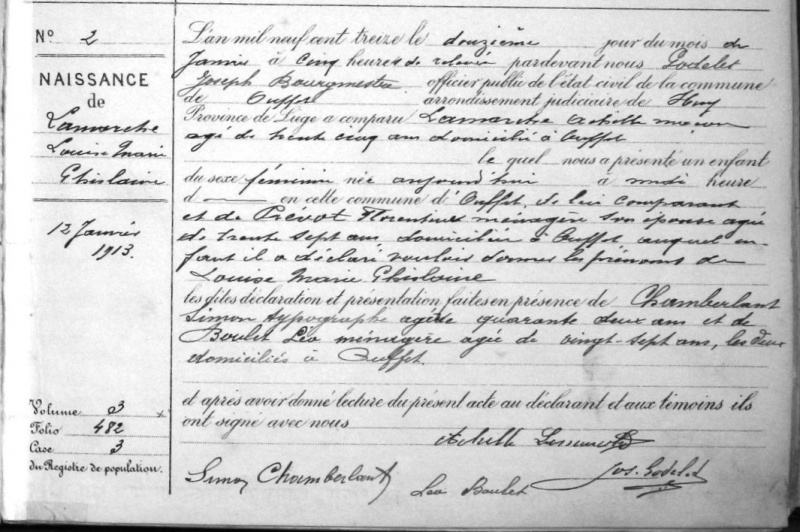 N° 2
NAISSANCE
de
Lamarche
Louise Marie
Ghislaine
12 Janvier
1913.
Volume 3
Folio 482
Case 3
du Registre de population.
L'an mil neuf cent treize le douzième jour du mois de
Janvier à cinq heures de relevée pardevant nous Godelet
Joseph Bourgmestre officier public de l'état civil de la commune
de Ouffet arrondissement judiciaire de Huy
Province de Liège a comparu Lamarche Achille maçon
agé de trente cinq ans domicilié à Ouffet
le quel nous a présenté un enfant
du sexe féminin née aujourd'hui à midi heure
d en cette commune d'Ouffet, de lui comparant
et de Prévot Florentine ménagère son épouse agée
de trente sept ans domiciliée à Ouffet auquel en-
fant il a déclaré vouloir donner les prénoms de
Louise Marie Ghislaine
les dites déclaration et présentation faites en présence de Chamberlant
Simon typographe agé de quarante deux ans et de
Boulet Léa ménagère agée de vingt-sept ans, les deux
domiciliés à Ouffet.
et après avoir donné lecture du présent acte au déclarant et aux témoins ils
ont signé avec nous
Achille
Simon Chamberlant
Léa Boulet
Jos. Godelet